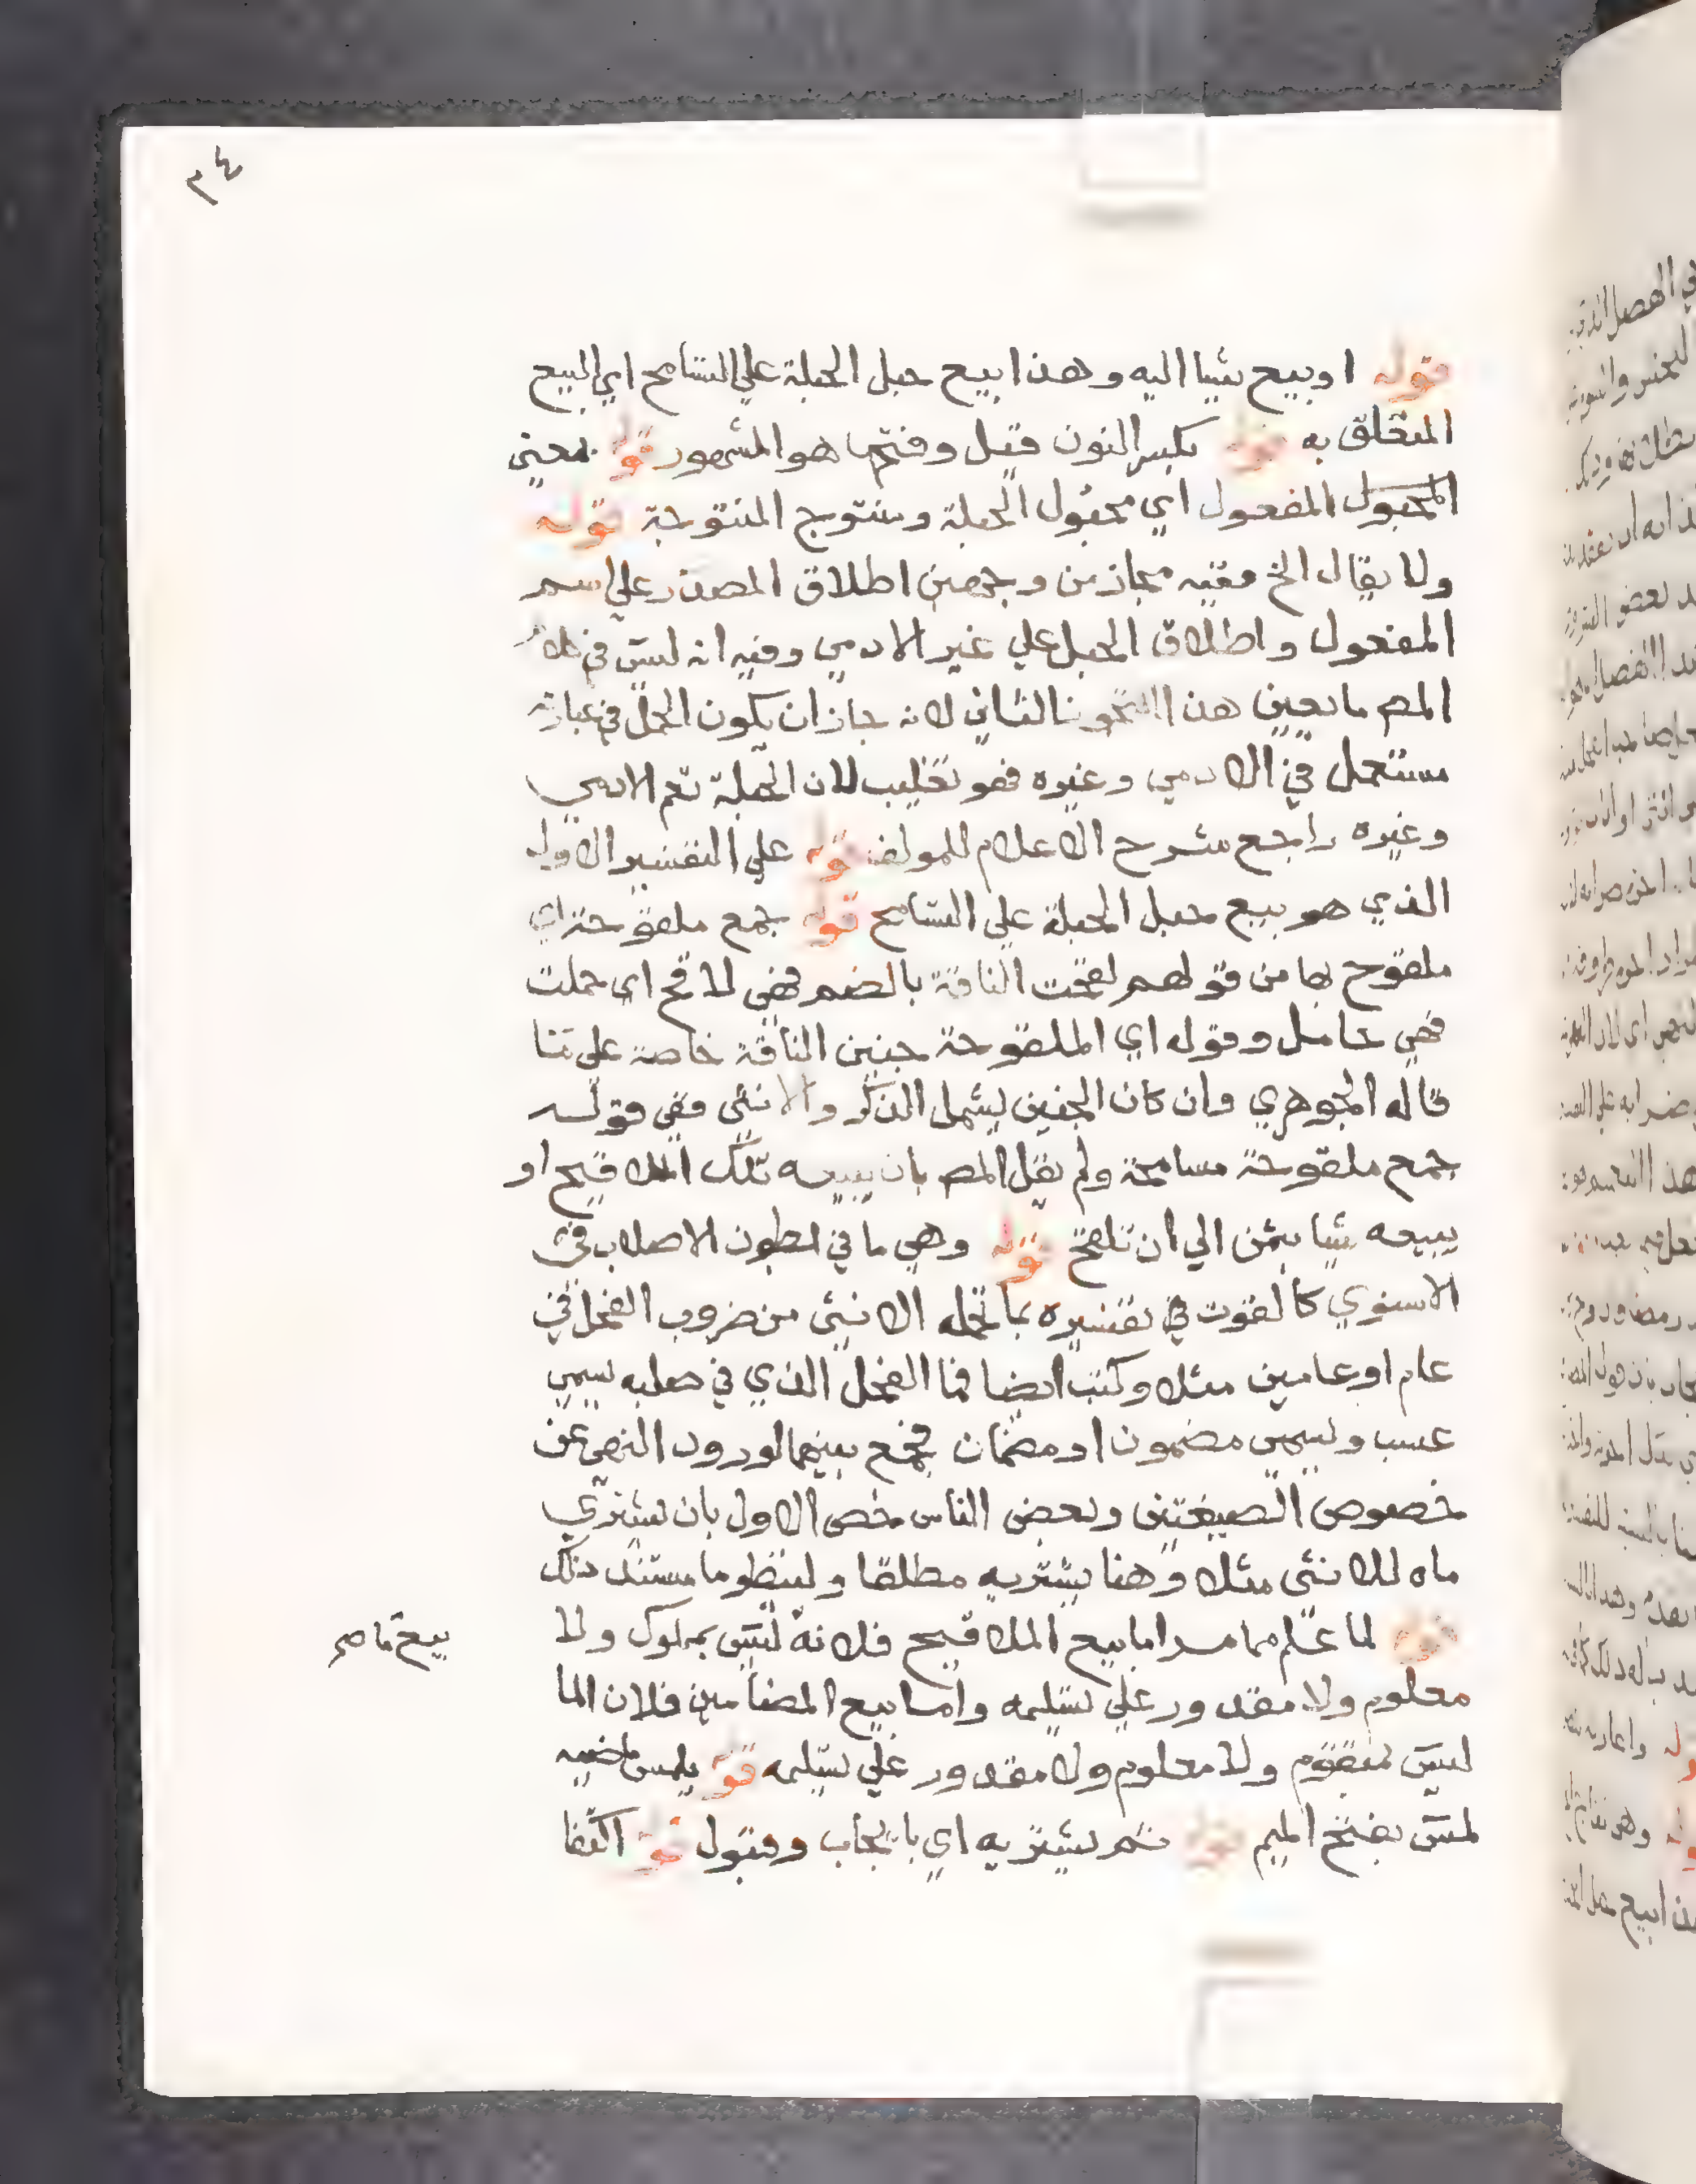 ٣٤
قوله او بيع شيا اليه وهذا بيع حبل الحبلة علي التسامح اي البيع
المتعلق به قوله بكسر النون قيل وفتحها هو المشهور قوله بمعني
المحبول المفعول اي محبول الحبلة ومنتوج المنتوجة قوله
ولا يقال الخ ففيه مجاز من وجهين اطلاق المصدر علي اسم
المفعول واطلاق الحبل علي غير الادمي وفيه انه ليس في كلام
المص ما يعين هذا التجوز الثاني لانه جاز ان يكون الحبل في عبارته
مستعمل في الادمي وغيره فهو تغليب لان الحبلة تعم الادمي
وغيره راجع شرح الاعلام للمولف قوله علي التفسير الاول
الذي هو بيع حبل الحبلة علي التسامح قوله جمع ملقوحة اي
ملقوح بها من قولهم لقحت الناقة بالضم فهي لاقح اي حملت
فهي حامل وقوله اي الملقوحة جنين الناقة خاصة علي
قاله الجوهري وان كان الجنين يشمل الذكر والانثي وفي قوله
جمع ملقوحة مسامحة ولم يقل المص بان يبيعه تلك الملاقيح او
يبيعه شيا بثمن الي ان تلقح قوله وهي ما في بطون الاصلاب في
الاسنوي كالقوت في تفسيره بما تحمله الانثي من ضروب الفحل في
عام او عامين مثلا وكتب ايضا فما الفحل الذي في صلبه يسمي
عسب ويسمي مضمون او مضمان فجمع بينهما لورود النهي عن
خصوص الصيغتين وبعض الناس خص الاول بان يشتري
ماه للانثي مثلا وهنا يشتريه مطلقا ولينظر ما مستند ذلك
قوله لما علم مما مر اما بيع الملاقيح فلانه ليس بمملوك ولا
معلوم ولا مقدور علي تسليمه واما بيع المضامين فلان الما
ليس بمتقوم ولا معلوم ولا مقدور علي تسليمه قوله يلمس ماضيه
لمس بفتح الميم قوله ثم يشتريه اي بايجاب وقبول قوله اكتفا
بيع